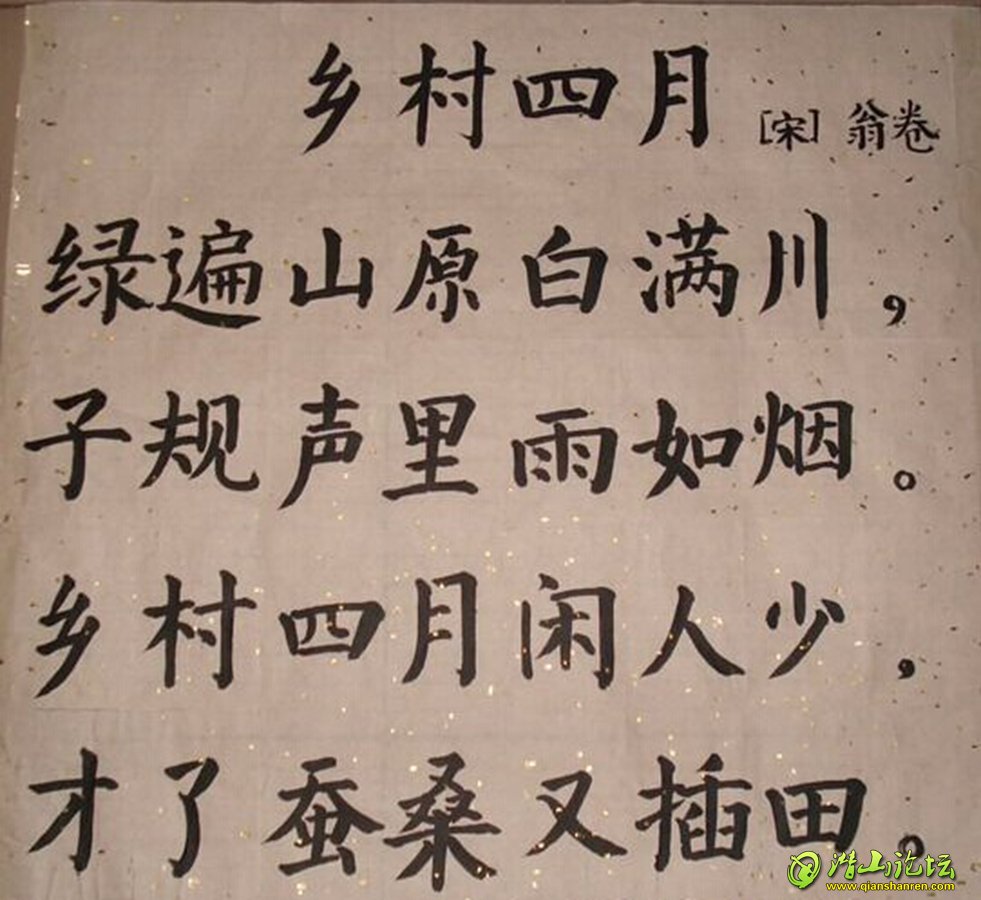 乡村四月
[宋] 翁卷
绿遍山原白满川，
子规声里雨如烟。
乡村四月闲人少，
才了蚕桑又插田。
潜山论坛
www.qianshanren.com